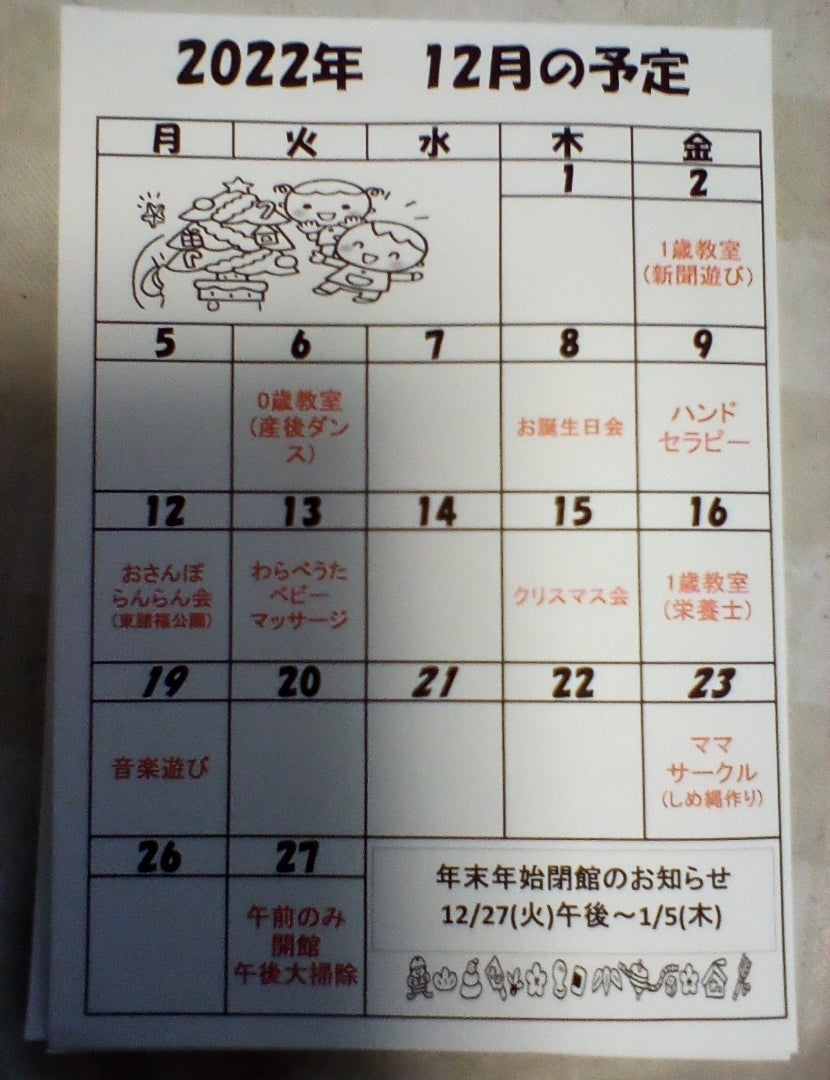 2022年 12月の予定
月 火 水 木 金
1 2
1歳教室
(新聞遊び)
5 6 7 8 9
0歳教室
(産後ダン
ス)
お誕生日会
ハンド
セラピー
12 13 14 15 16
おさんぽ
らんらん会
(東諸福公園)
わらべうた
ベビー
マッサージ
クリスマス会
1歳教室
(栄養士)
19 20 21 22 23
音楽遊び
ママ
サークル
(しめ縄作り)
26 27
午前のみ
開館
午後大掃除
年末年始閉館のお知らせ
12/27(火)午後～1/5(木)